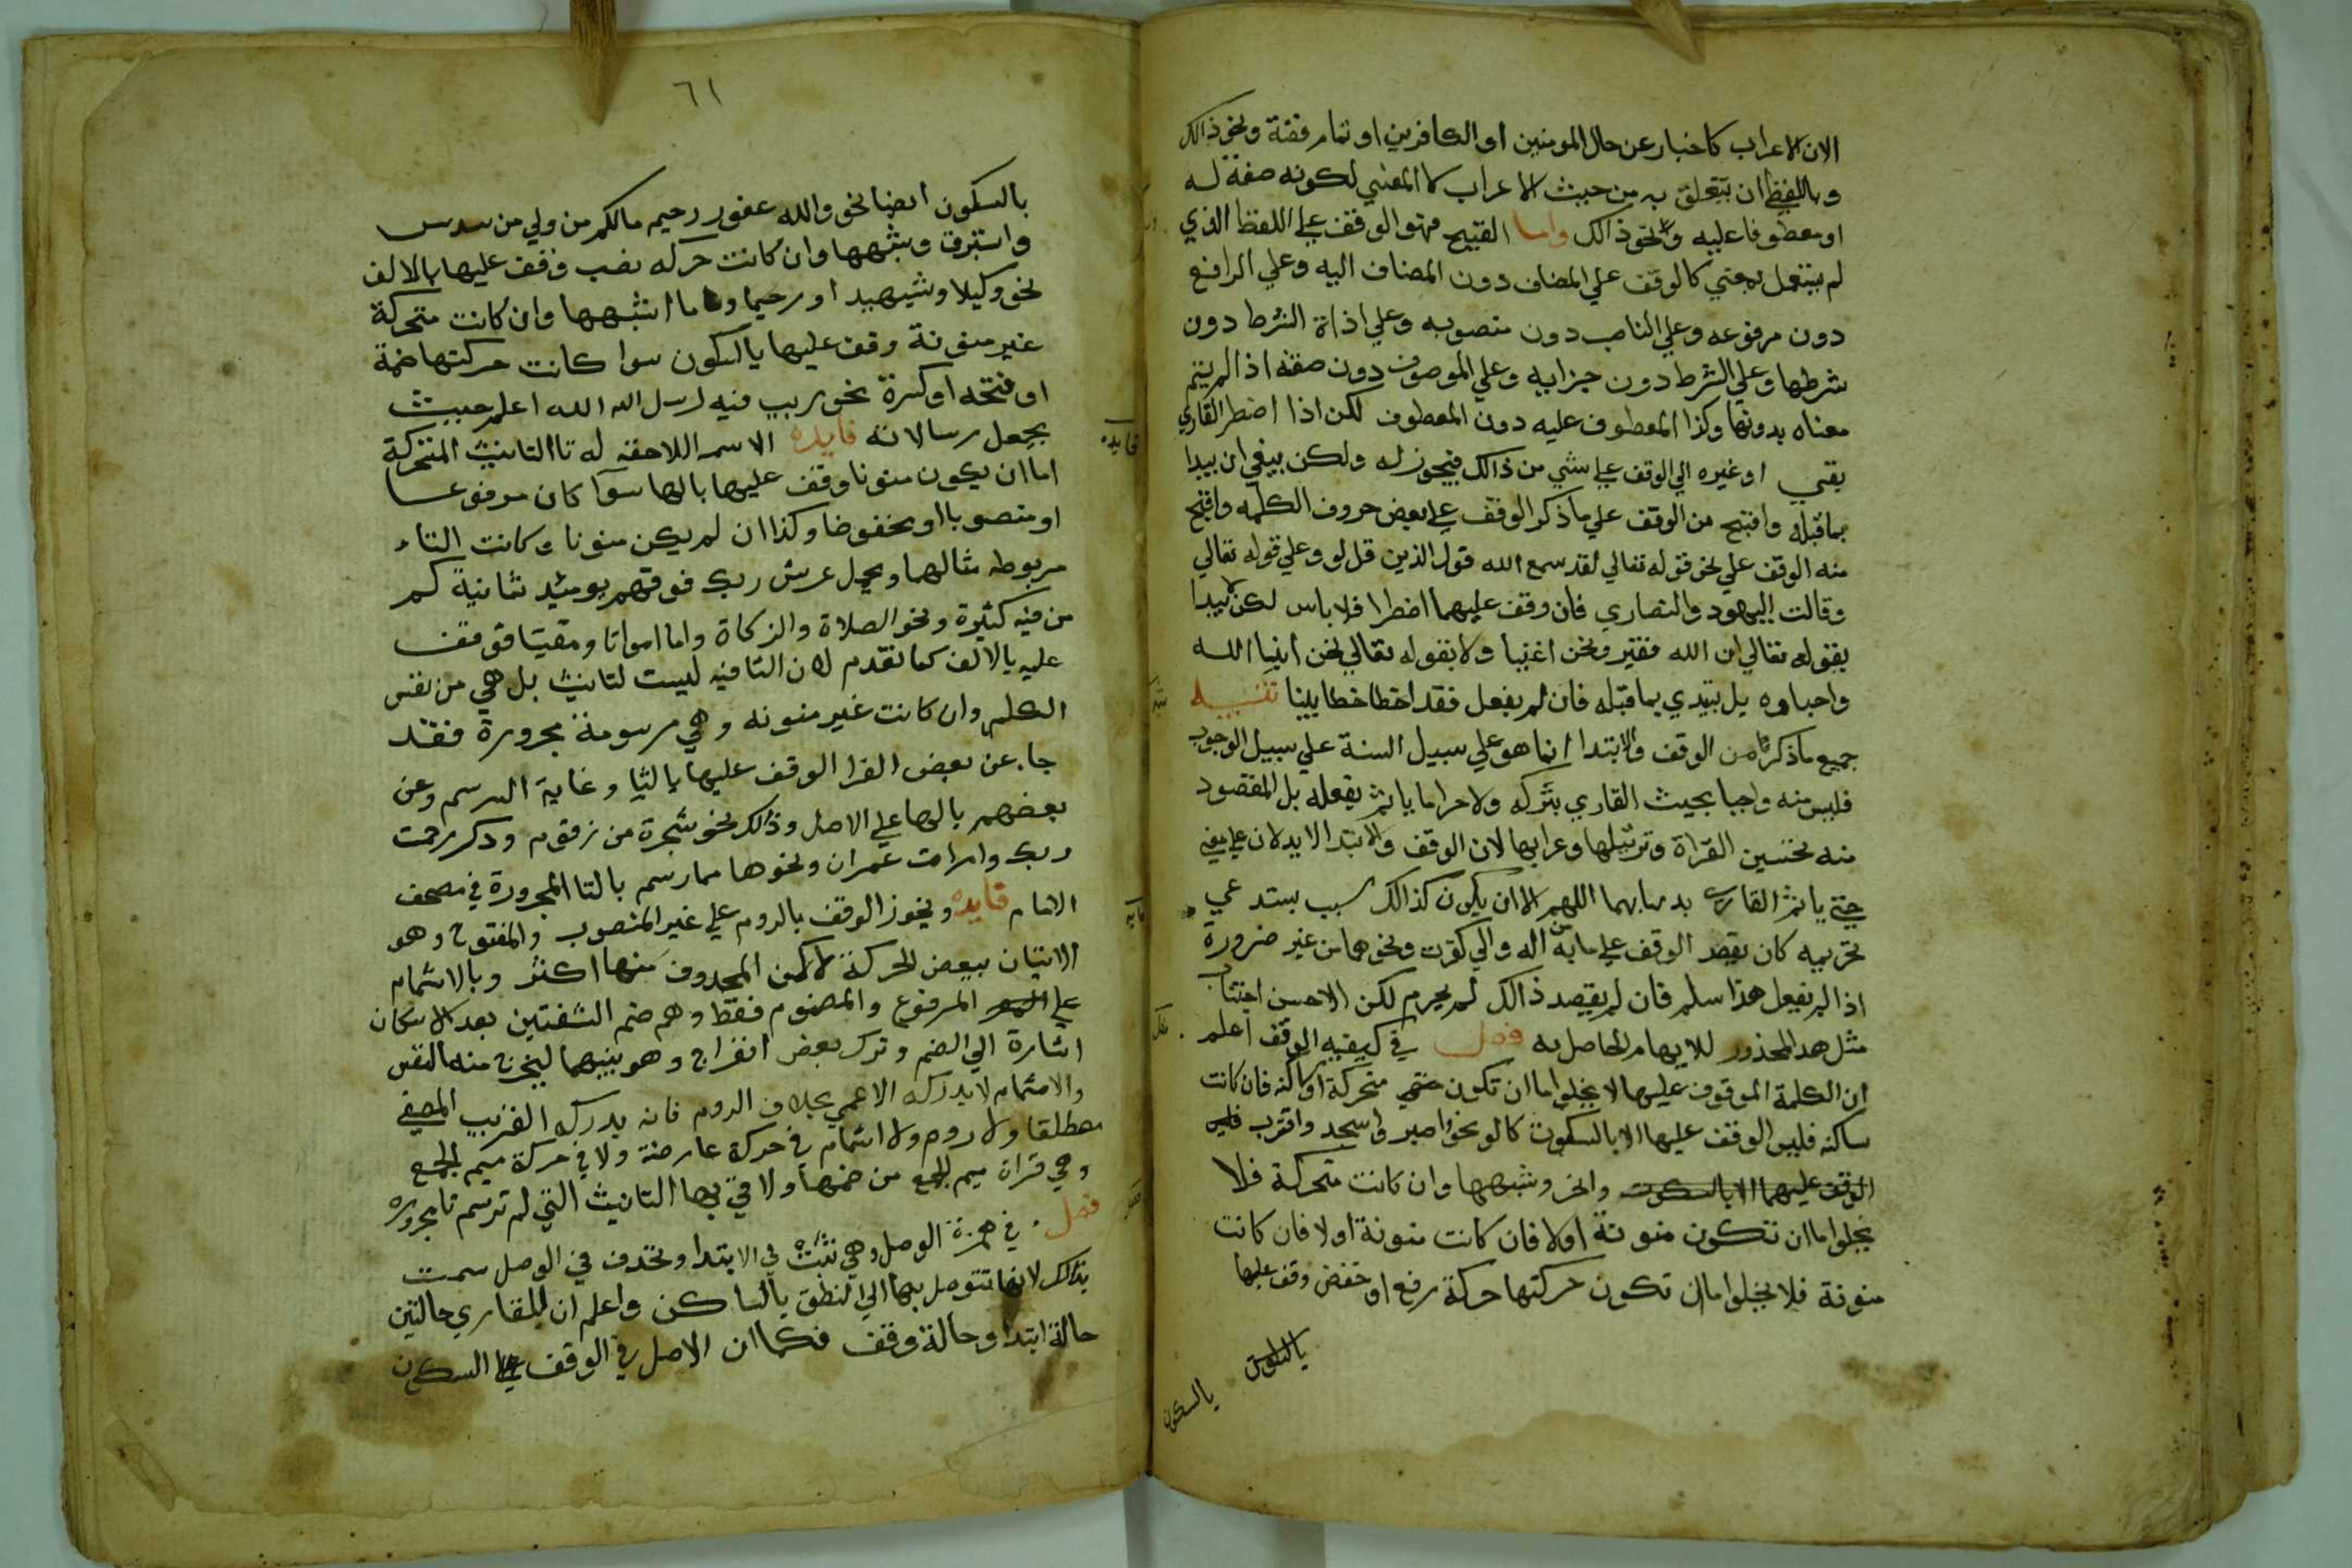 الان الاعراب كاخبار عن حال المومنين او الكافرين او تمام قصة ونحو ذالك
وباللفظ ان يتعلق به من حيث الاعراب لا المعني لكونه صفة له
او معطوفا عليه ونحو ذالك واما القبيح فهو الوقف علي اللفظ الذي
لم يستعمل بمعني كالوقف علي المضاف دون المضاف اليه وعلي الرافع
دون مرفوعه وعلي الناصب دون منصوبه وعلي اداة الشرط دون
شرطها وعلي الشرط دون جزايه وعلي الموصوف دون صفته اذا لم يتم
معناه بدونها وكذا المعطوف عليه دون المعطوف لكن اذا اضطر القاري
او غيره الي الوقف علي شي من ذالك فيجوز له ولكن ينبغي ان يبدا
بما قبله واقبح من الوقف علي ما ذكر الوقف علي بعض حروف الكلمه واقبح
منه الوقف علي نحو قوله تعالي لقد سمع الله قول الذين قالوا وعلي قوله تعالي
وقالت اليهود والنصاري فان وقف عليهما اضطرا فلا باس لكن لا يبدا
بقوله تعالي ان الله فقير ونحن اغنيا ولا بقوله تعالي نحن ابنا الله
واحباوه بل يبتدي بما قبله فان لم يفعل فقد اخطا خطا بينا تنبيه
جميع ما ذكرنا من الوقف والابتدا انما هو علي سبيل السنة علي سبيل الوجوب
فليس منه واجبا بحيث القاري بتركه ولا حراما ياثم بفعله بل المقصود
منه تحسين القراة وترتيلها وعرابها لان الوقف والابتدا لا يدلان علي معني
حتي ياثم القاري بدهابهما اللهم الا ان يكون كذالك سبب يستدعي
تحريمه كان يقصد الوقف علي ما من اله واني كفرت ونحوهما من غير ضرورة
اذ لا يفعل هذا مسلم فان لم يقصد ذالك لم يحرم لكن الاحسن اجتناب
مثل هد المحذور للايهام الحاصل به فصل في كيفيه الوقف اعلم
ان الكلمة الموقوف عليها لا يخلو اما ان تكون متحركة او ساكنه فان كانت
ساكنه فليس الوقف عليها الا بالسكون كالو نحو اصبر واسجد واقترب فليس
الوقف عليهما الا بالسكون وانحر وشبهها وان كانت متحركة فلا
يخلو اما ان تكون منونة اولا فان كانت منونة اولا فان كانت
منونة فلا يخلو اما ان تكون حركتها حركة رفع او خفض وقف عليها
بالسكون
بالسكون
٦١
بالسكون ايضا نحو والله غفور رحيم مالكم من ولي من سندس
واستبرق وشبهها وان كانت حركه نصب وقف عليها بالالف
نحو وكيلا وشهيدا ورحيما وما اشبهها وان كانت متحركة
غير منونة وقف عليها بالسكون سوا كانت حركتها ضمة
او فتحه او كسرة نحو ريب فيه لرسل الله الله اعلم حيث
يجعل رسالاته فايده الاسم اللاحقه له تا التانيث المتحركة
اما ان يكون منونا وقف عليها بالها سوا كان مرفوعا
او منصوبا او مخفوضا وكذا ان لم يكن منونا وكانت التاء
مربوطه مثالهما ويحمل عرش ربك فوقهم يوميذ ثمانية كم
من فيه كثيرة ونحو الصلاة والزكاة واما امواتا ومقيتا فوقف
عليه بالالف كما تقدم لان التا فيه ليست لتانيث بل هي من نفس
الكلم وان كانت غير منونه وهي مرسومة مجرورة فقد
جا عن بعض القرا الوقف عليها بالتا وغاية الرسم وعن
بعضهم بالها علي الاصل وذلك نحو شجرة من زقوم وذكر رحمت
ربك وامرات عمران ونحوها مما رسم بالتا المجرورة في مصحف
الامام فايده ويجوز الوقف بالروم علي غير المنصوب والمفتوح وهو
الاتيان ببعض الحركة لكن المحدوف منها اكثر وبالاشمام
علي المرفوع والمضموم فقط وهم ضم الشفتين بعد الاسكان
اشارة الي الضم وترك بعض انفراج وهو بينهما ليخرج منه النفس
والاشمام لا يدركه الاعمي بخلاف الروم فانه يدركه القريب المصغي
مطلقا ولا روم ولا اشمام في حركة عارضة ولا في حركة ميم الجمع
وهي قراة ميم الجمع من ضمها ولا في بها التانيث التي لم ترسم تا مجروره
فصل . في همزة الوصل وهي تثبت في الابتدا وتحدف في الوصل سميت
بذالك لانها تتوصل بها الي النطق بالساكن واعلم ان للقاري حالتين
حالة ابتدا وحالة وقف فكما ان الاصل في الوقف علي السكون
فايده